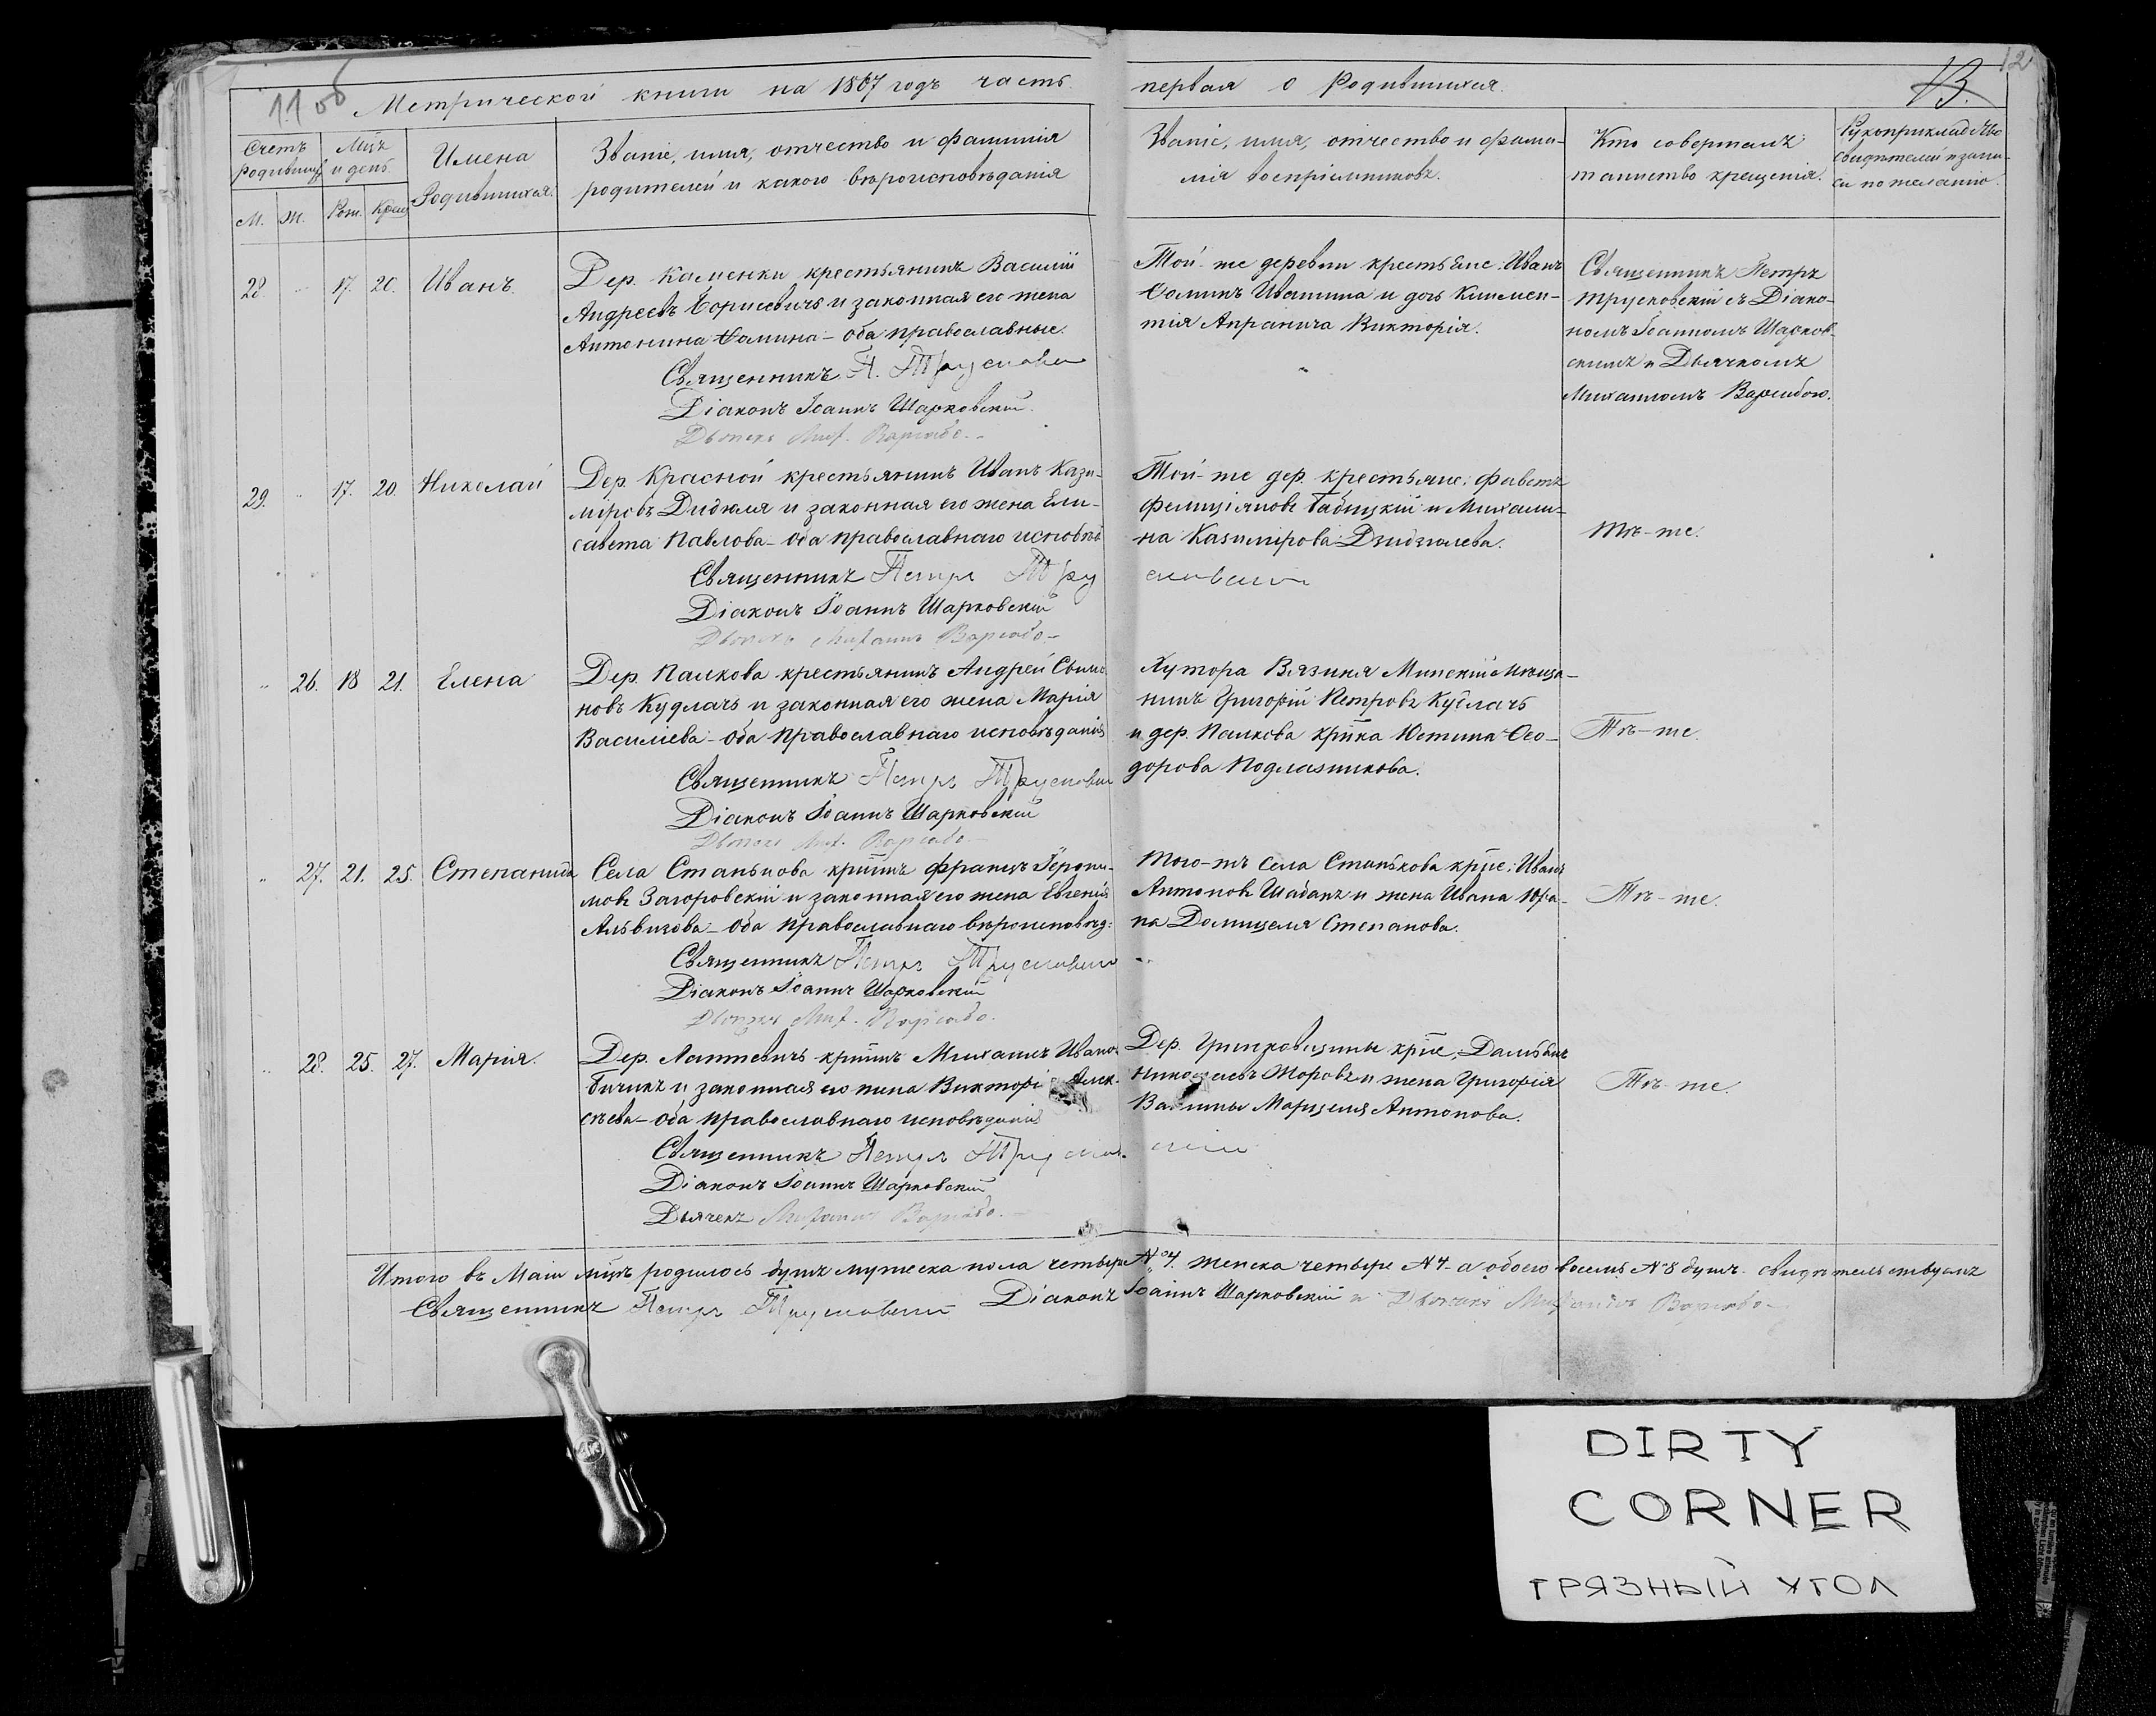 11 об
12
13.
Метрической книги на 1867 годъ часть первая о Родившихся.
Счетъ родившихся
Мцъ и день
М. Ж. Рож. Крещ
Имена Родившихся.
Званіе, имя, отчество и фамилія
родителей и какого вѣроисповѣданія
Званіе, имя, отчество и фами-
лія воспріемниковъ.
Кто совершалъ
таинство крещенія.
Рукоприкладство
свидѣтелей и запи-
си по желанію.
28. " 17. 20. Иванъ.
Дер. Каменки крестьянинъ Василій
Андреевъ Борисевичъ и законная его жена
Антонина Ѳомина - оба православные.
Священникъ П.
Діаконъ Іоаннъ Шарковскій.
Той-же деревни крестьяне: Иванъ
Ѳоминъ Ивашина и дочь Климен-
тія Апранича Викторія.
Священникъ Петръ
Трусковскій съ Діако-
номъ Іоанномъ Шарков-
скимъ и Дьячкомъ
Михаиломъ Варнабою.
29. " 17. 20. Николай
Дер. Красной крестьянинъ Иванъ Кази-
міровъ Дидюля и законная его жена Ели-
савета Павлова - оба православнаго исповѣд
Священникъ Петръ
Діаконъ Іоаннъ Шарковскій
Той-же дер. крестьяне:
Фелиціановъ и Михали-
на Казимірова
Тѣ-же.
" 26. 18 21. Елена
Дер. Палкова крестьянинъ Андрей
новъ Кудлачъ и законная его жена Марія
Василіева - оба православнаго исповѣданія
Священникъ Петръ
Діаконъ Іоаннъ Шарковскій
Хутора Вязиня Минскій мѣща-
нинъ Григорій Петровъ Кудлачъ
и дер. Палкова крнка Юстина Ѳео-
дорова Подлазникова.
Тѣ-же.
" 27. 21. 25. Степанида
Села Станькова крнинъ Францъ Іерони-
мовъ Загоровскій и законная его жена Евгенія
Альвизова - оба православнаго вѣроисповѣд:
Священникъ Петръ
Діаконъ Іоаннъ Шарковскій
Того-жъ Села Станькова крне: Иванъ
Антоновъ Шабанъ и жена Ивана Юра-
па Домицеля Степанова.
Тѣ-же.
" 28. 25. 27. Марія.
Дер. Лаптевичъ крнинъ Михаилъ Ивано
Бичикъ и законная его жена Викторі Алек-
сѣева - оба православнаго исповѣданія
Священникъ Петръ
Діаконъ Іоаннъ Шарковскій
Дьячекъ Михаилъ
Дер. Гришковщины крне:
Николаевъ и жена Григорія
Марцеля Антонова.
Тѣ-же.
Итого въ Маѣ мцѣ родилось душъ мужеска пола четыре №4. женска четыре №4 - а обоего восемь №8 душъ. свидѣтельствуемъ
Священникъ Петръ Діаконъ Іоаннъ Шарковскій и Михаилъ
DIRTY
CORNER
ГРЯЗНЫЙ УГОЛ